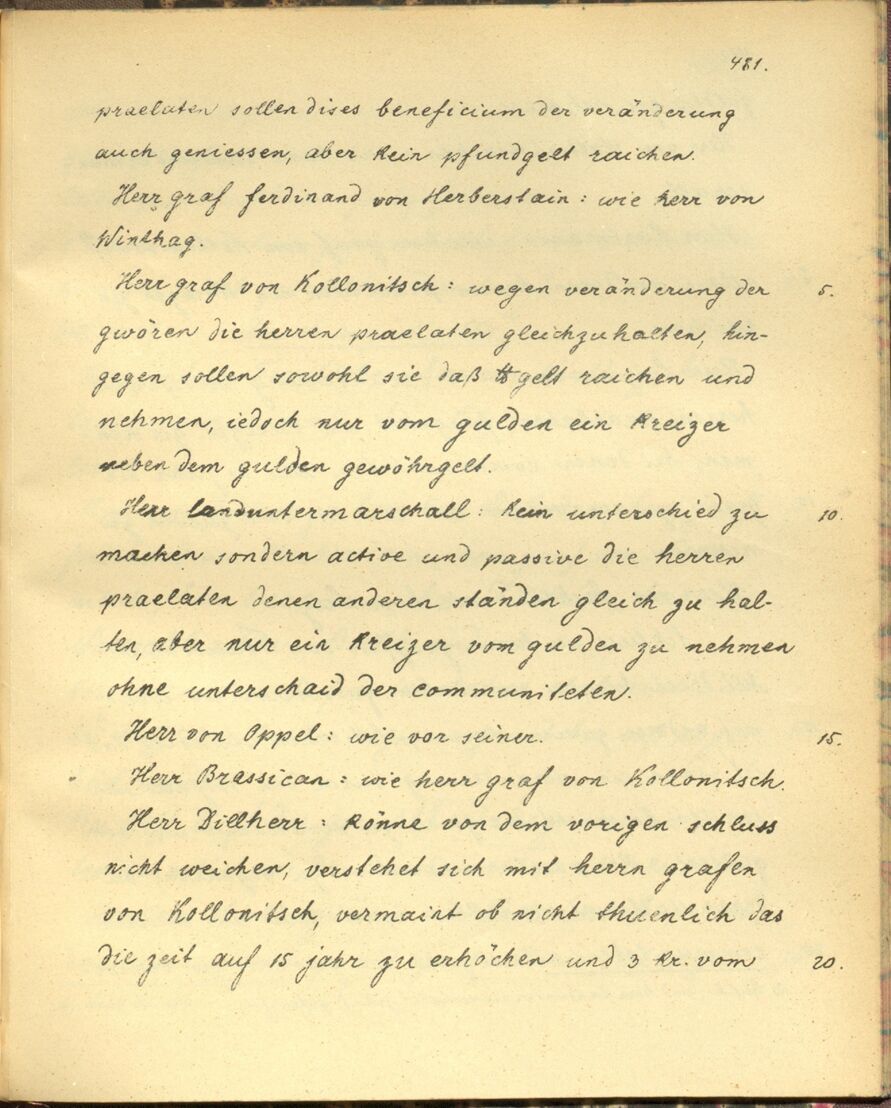 481.
praelaten sollen dises beneficium der veränderung
auch geniessen, aber kein pfundgelt raichen.
Herr graf ferdinand von Herberstain: wie herr von
Winthag.
Herr graf von Kollonitsch: wegen veränderung der 5.
gwören die herren praelaten gleichzuhalten, hin-
gegen sollen sowohl sie daß ℔gelt raichen und
nehmen, iedoch nur vom gulden ein kreizer
neben dem gulden gewöhrgelt.
Herr landuntermarschall: kein unterschied zu 10.
machen sondern active und passive die herren
praelaten denen anderen ständen gleich zu hal-
ten, aber nur ein kreizer vom gulden zu nehmen
ohne unterschaid der communiteten.
Herr von Oppel: wie vor seiner. 15.
Herr Brassican: wie herr graf von Kollonitsch.
Herr Dillherr: könne von dem vorigen schluss
nicht weichen, verstehet sich mit herrn grafen
von Kollonitsch, vermaint ob nicht thuenlich das
die zeit auf 15 jahr zu erhöchen und 3 kr. vom 20.